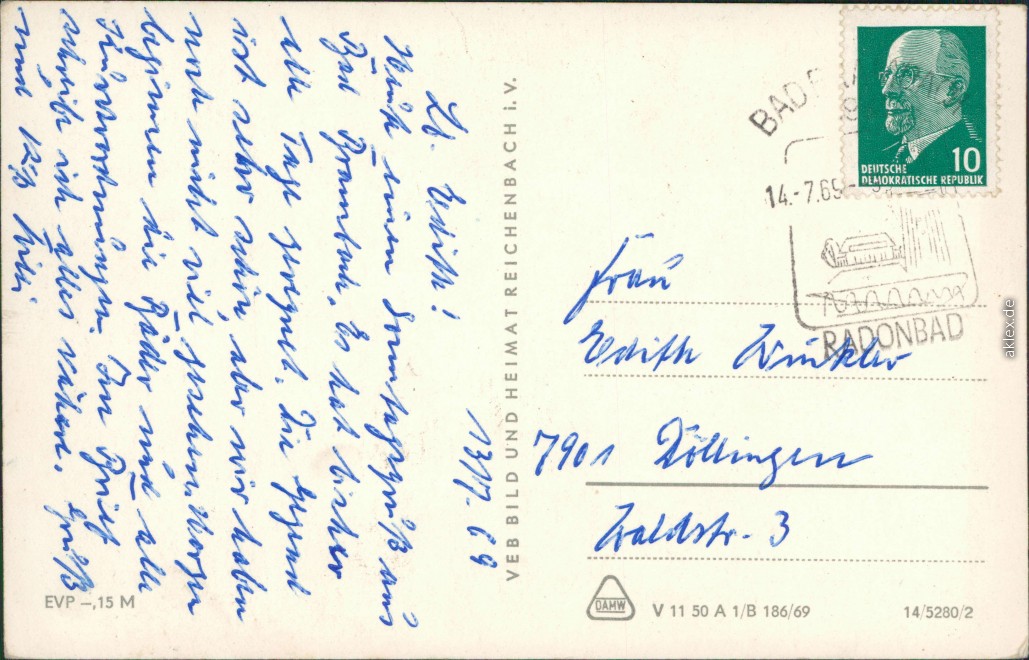 13/7. 69
Lb. Edith!
Heute einen Sonntagsgruß aus
Bad Brambach. Es hat bisher
alle Tage geregnet. Die Gegend
ist sehr schön aber wir haben
noch nicht viel gesehen. Morgen
beginnen die Bäder und alle
Im Brief
schreibe ich alles nähere. Gruß
und Kuß Willi
VEB BILD UND HEIMAT REICHENBACH i. V.
EVP –,15 M
BAD
14.-7.69-
RADONBAD
10
DEUTSCHE
DEMOKRATISCHE REPUBLIK
Frau
Edith Winkler
7901 Döllingen
Waldstr. 3
DAMW
V 11 50 A 1/B 186/69
14/5280/2
aklex.de